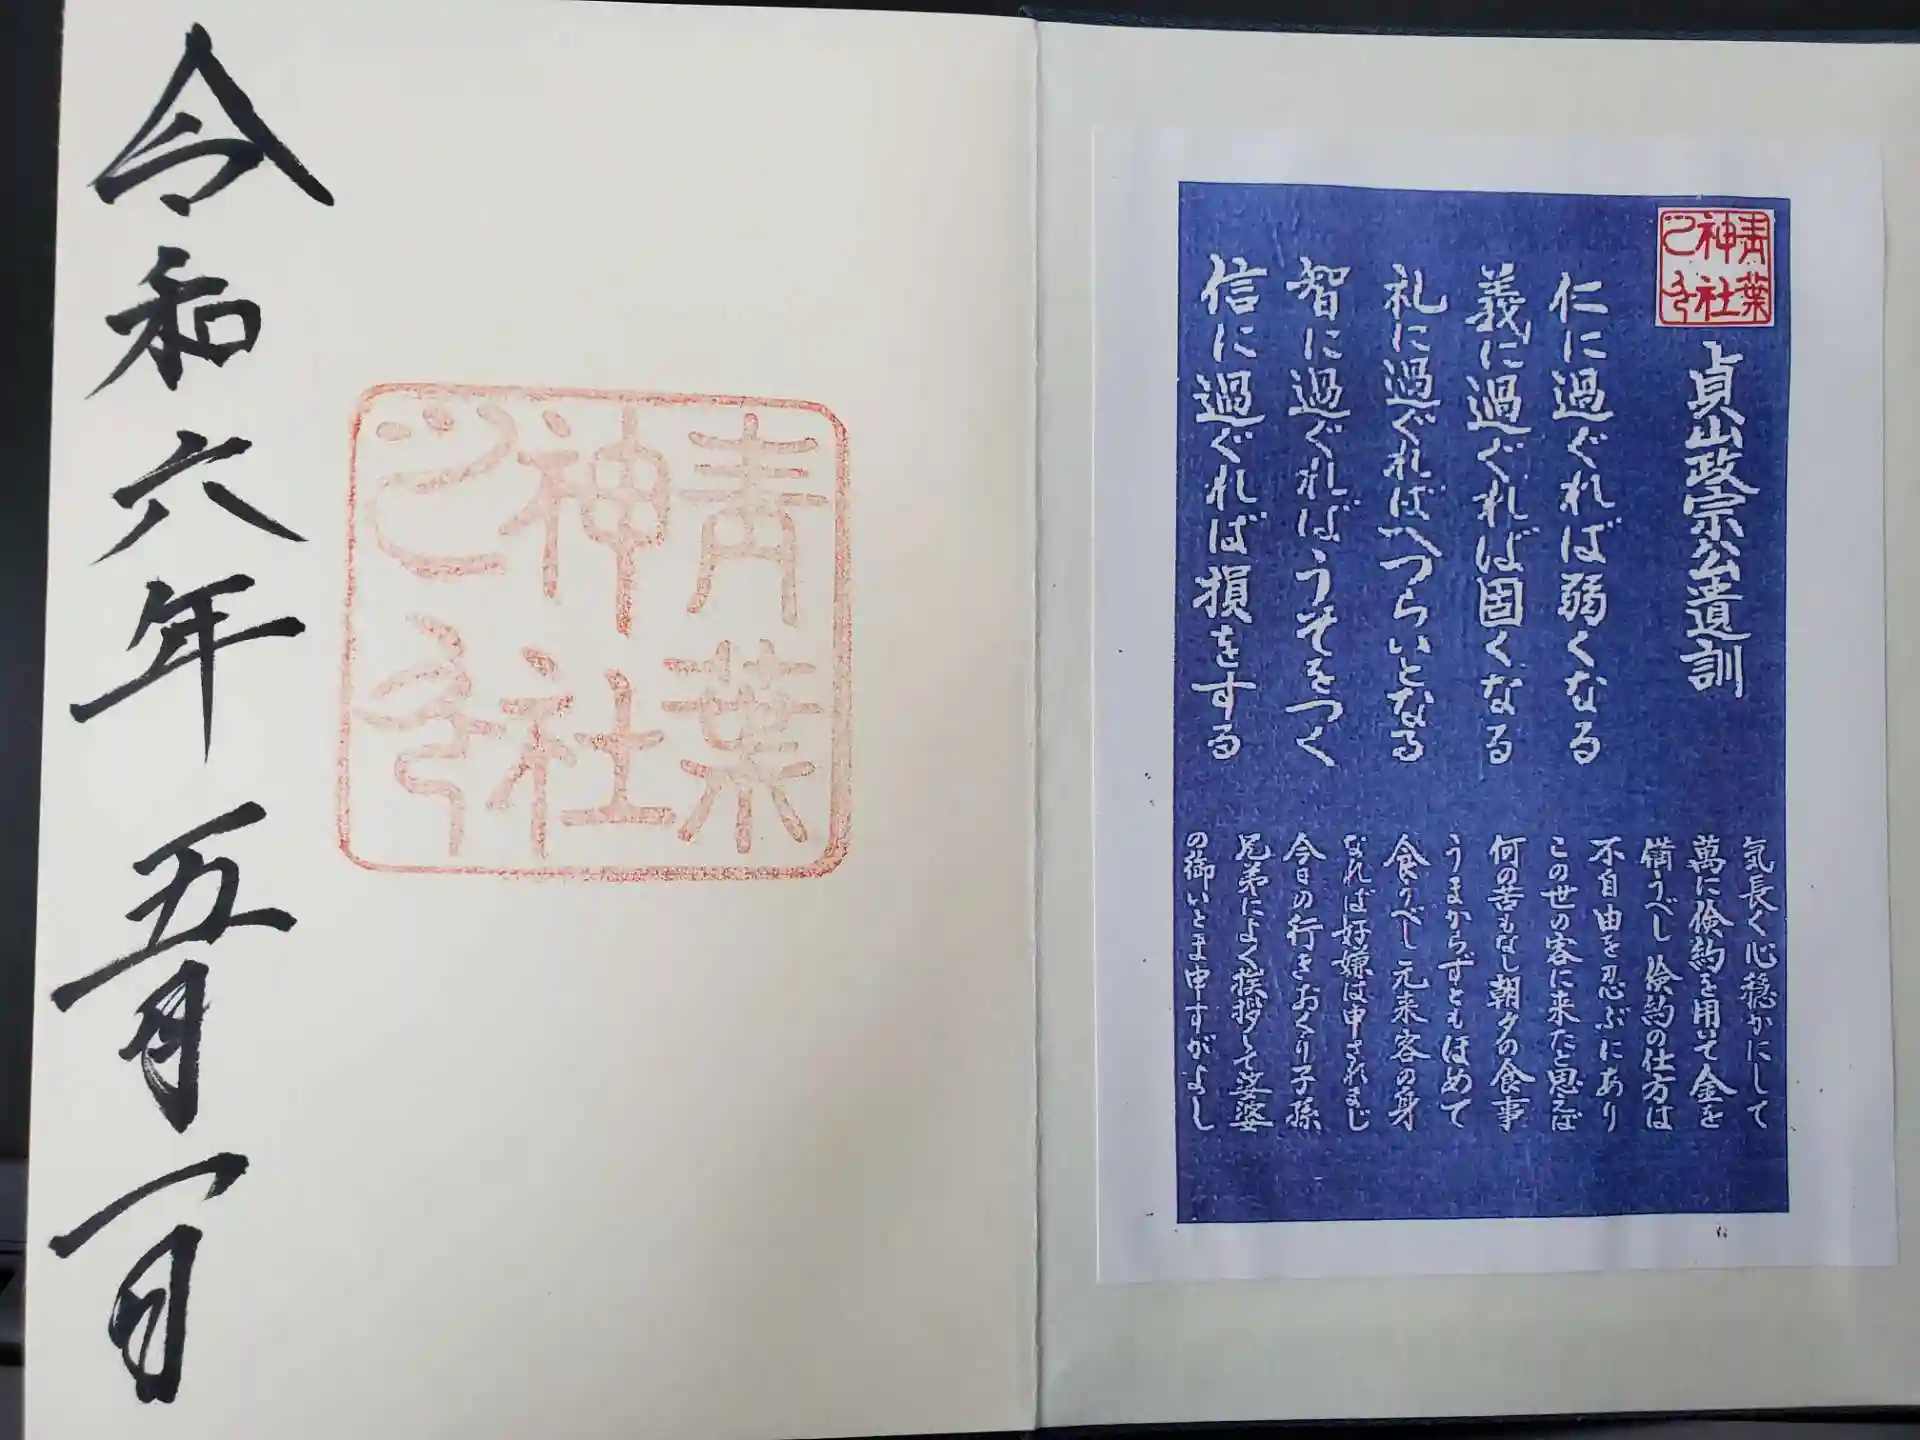 青葉
神社
之印
貞山政宗公遺訓
仁に過ぐれば弱くなる
義に過ぐれば固くなる
礼に過ぐればへつらいとなる
智に過ぐればうそをつく
信に過ぐれば損をする
気長く心穏かにして
萬に倹約を用いて金を
備うべし 倹約の仕方は
不自由を忍ぶにあり
この世の客に来たと思えば
何の苦もなし朝夕の食事
うまからずともほめて
食うべし 元来客の身
なれば好嫌は申されまじ
今日の行きおくり子孫
兄弟によく挨拶して娑婆
の御いとま申すがよし
青葉
神社
之印
令和六年 五月一日